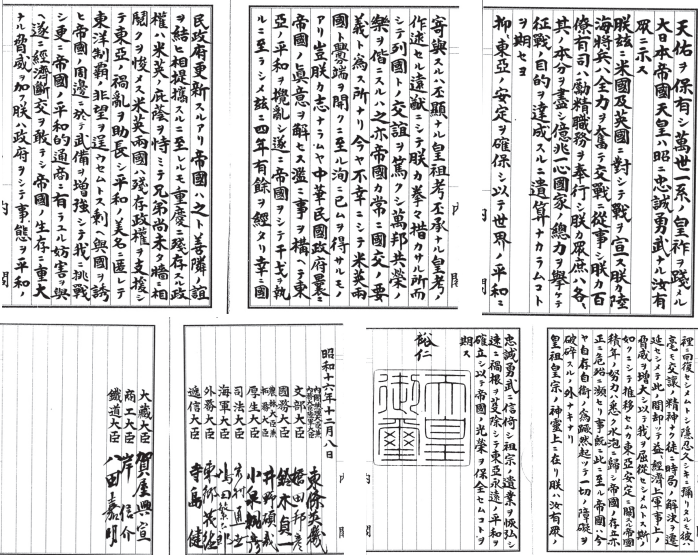 天佑ヲ保有シ萬世一系ノ皇祚ヲ踐メル
大日本帝國天皇ハ昭ニ忠誠勇武ナル汝有
眾ニ示ス
朕茲ニ米國及英國ニ對シテ戰ヲ宣ス朕カ陸
海將兵ハ全力ヲ奮テ交戰ニ從事シ朕カ百
僚有司ハ勵精職務ヲ奉行シ朕カ眾庶ハ各〻
其ノ本分ヲ盡シ億兆一心國家ノ總力ヲ擧ケテ
征戰ノ目的ヲ達成スルニ遺算ナカラムコト
ヲ期セヨ
抑〻東亞ノ安定ヲ確保シ以テ世界ノ平和ニ
內閣
寄與スルハ丕顯ナル皇祖考丕承ナル皇考ノ
作述セル遠猷ニシテ朕カ拳々措カサル所而
シテ列國トノ交誼ヲ篤クシ萬邦共榮ノ
樂ヲ偕ニスルハ之亦帝國カ常ニ國交ノ要
義ト爲ス所ナリ今ヤ不幸ニシテ米英兩
國ト釁端ヲ開クニ至ル洵ニ已ムヲ得サルモノ
アリ豈朕カ志ナラムヤ中華民國政府曩ニ
帝國ノ眞意ヲ解セス濫ニ事ヲ構ヘテ東
亞ノ平和ヲ攪亂シ遂ニ帝國ヲシテ干戈ヲ執
ルニ至ラシメ茲ニ四年有餘ヲ經タリ幸ニ國
民政府更新スルアリ帝國ハ之ト善隣ノ誼
ヲ結ヒ相提攜スルニ至レルモ重慶ニ殘存スル政
權ハ米英ノ庇蔭ヲ恃ミテ兄弟尚未タ牆ニ相
鬩クヲ悛メス米英兩國ハ殘存政權ヲ支援シ
テ東亞ノ禍亂ヲ助長シ平和ノ美名ニ匿レテ
東洋制覇ノ非望ヲ逞ウセムトス剩ヘ與國ヲ誘
ヒ帝國ノ周邊ニ於テ武備ヲ增強シテ我ニ挑戰
シ更ニ帝國ノ平和的通商ニ有ラユル妨害ヲ與
ヘ遂ニ經濟斷交ヲ敢テシ帝國ノ生存ニ重大
ナル脅威ヲ加フ朕ハ政府ヲシテ事態ヲ平和ノ
內閣
裡ニ囘復セシメムトシ隱忍久シキニ彌リタルモ彼ハ
毫モ交讓ノ精神ナク徒ニ時局ノ解決ヲ遷
延セシメテ此ノ間却ツテ益〻經濟上軍事上ノ
脅威ヲ增大シ以テ我ヲ屈從セシメムトス斯ノ
如クニシテ推移セムカ東亞安定ニ關スル帝國
積年ノ努力ハ悉ク水泡ニ歸シ帝國ノ存立亦
正ニ危殆ニ瀕セリ事既ニ此ニ至ル帝國ハ今
ヤ自存自衞ノ爲蹶然起ツテ一切ノ障礙ヲ
破碎スルノ外ナキナリ
皇祖皇宗ノ神靈上ニ在リ朕ハ汝有眾ノ
忠誠勇武ニ信倚シ祖宗ノ遺業ヲ恢弘シ
速ニ禍根ヲ芟除シテ東亞永遠ノ平和ヲ
確立シ以テ帝國ノ光榮ヲ保全セムコトヲ
期ス
裕仁
天皇御璽
昭和十六年十二月八日
內閣總理大臣兼
內務大臣陸軍大臣
東條英機
文部大臣 橋田邦彦
國務大臣 鈴木貞一
農林大臣兼
拓務大臣
井野碩哉
厚生大臣 小泉親彦
司法大臣 岩村通世
海軍大臣 嶋田繁太郎
外務大臣 東鄕茂德
遞信大臣 寺島健
大藏大臣 賀屋興宣
商工大臣 岸信介
鐵道大臣 八田嘉明